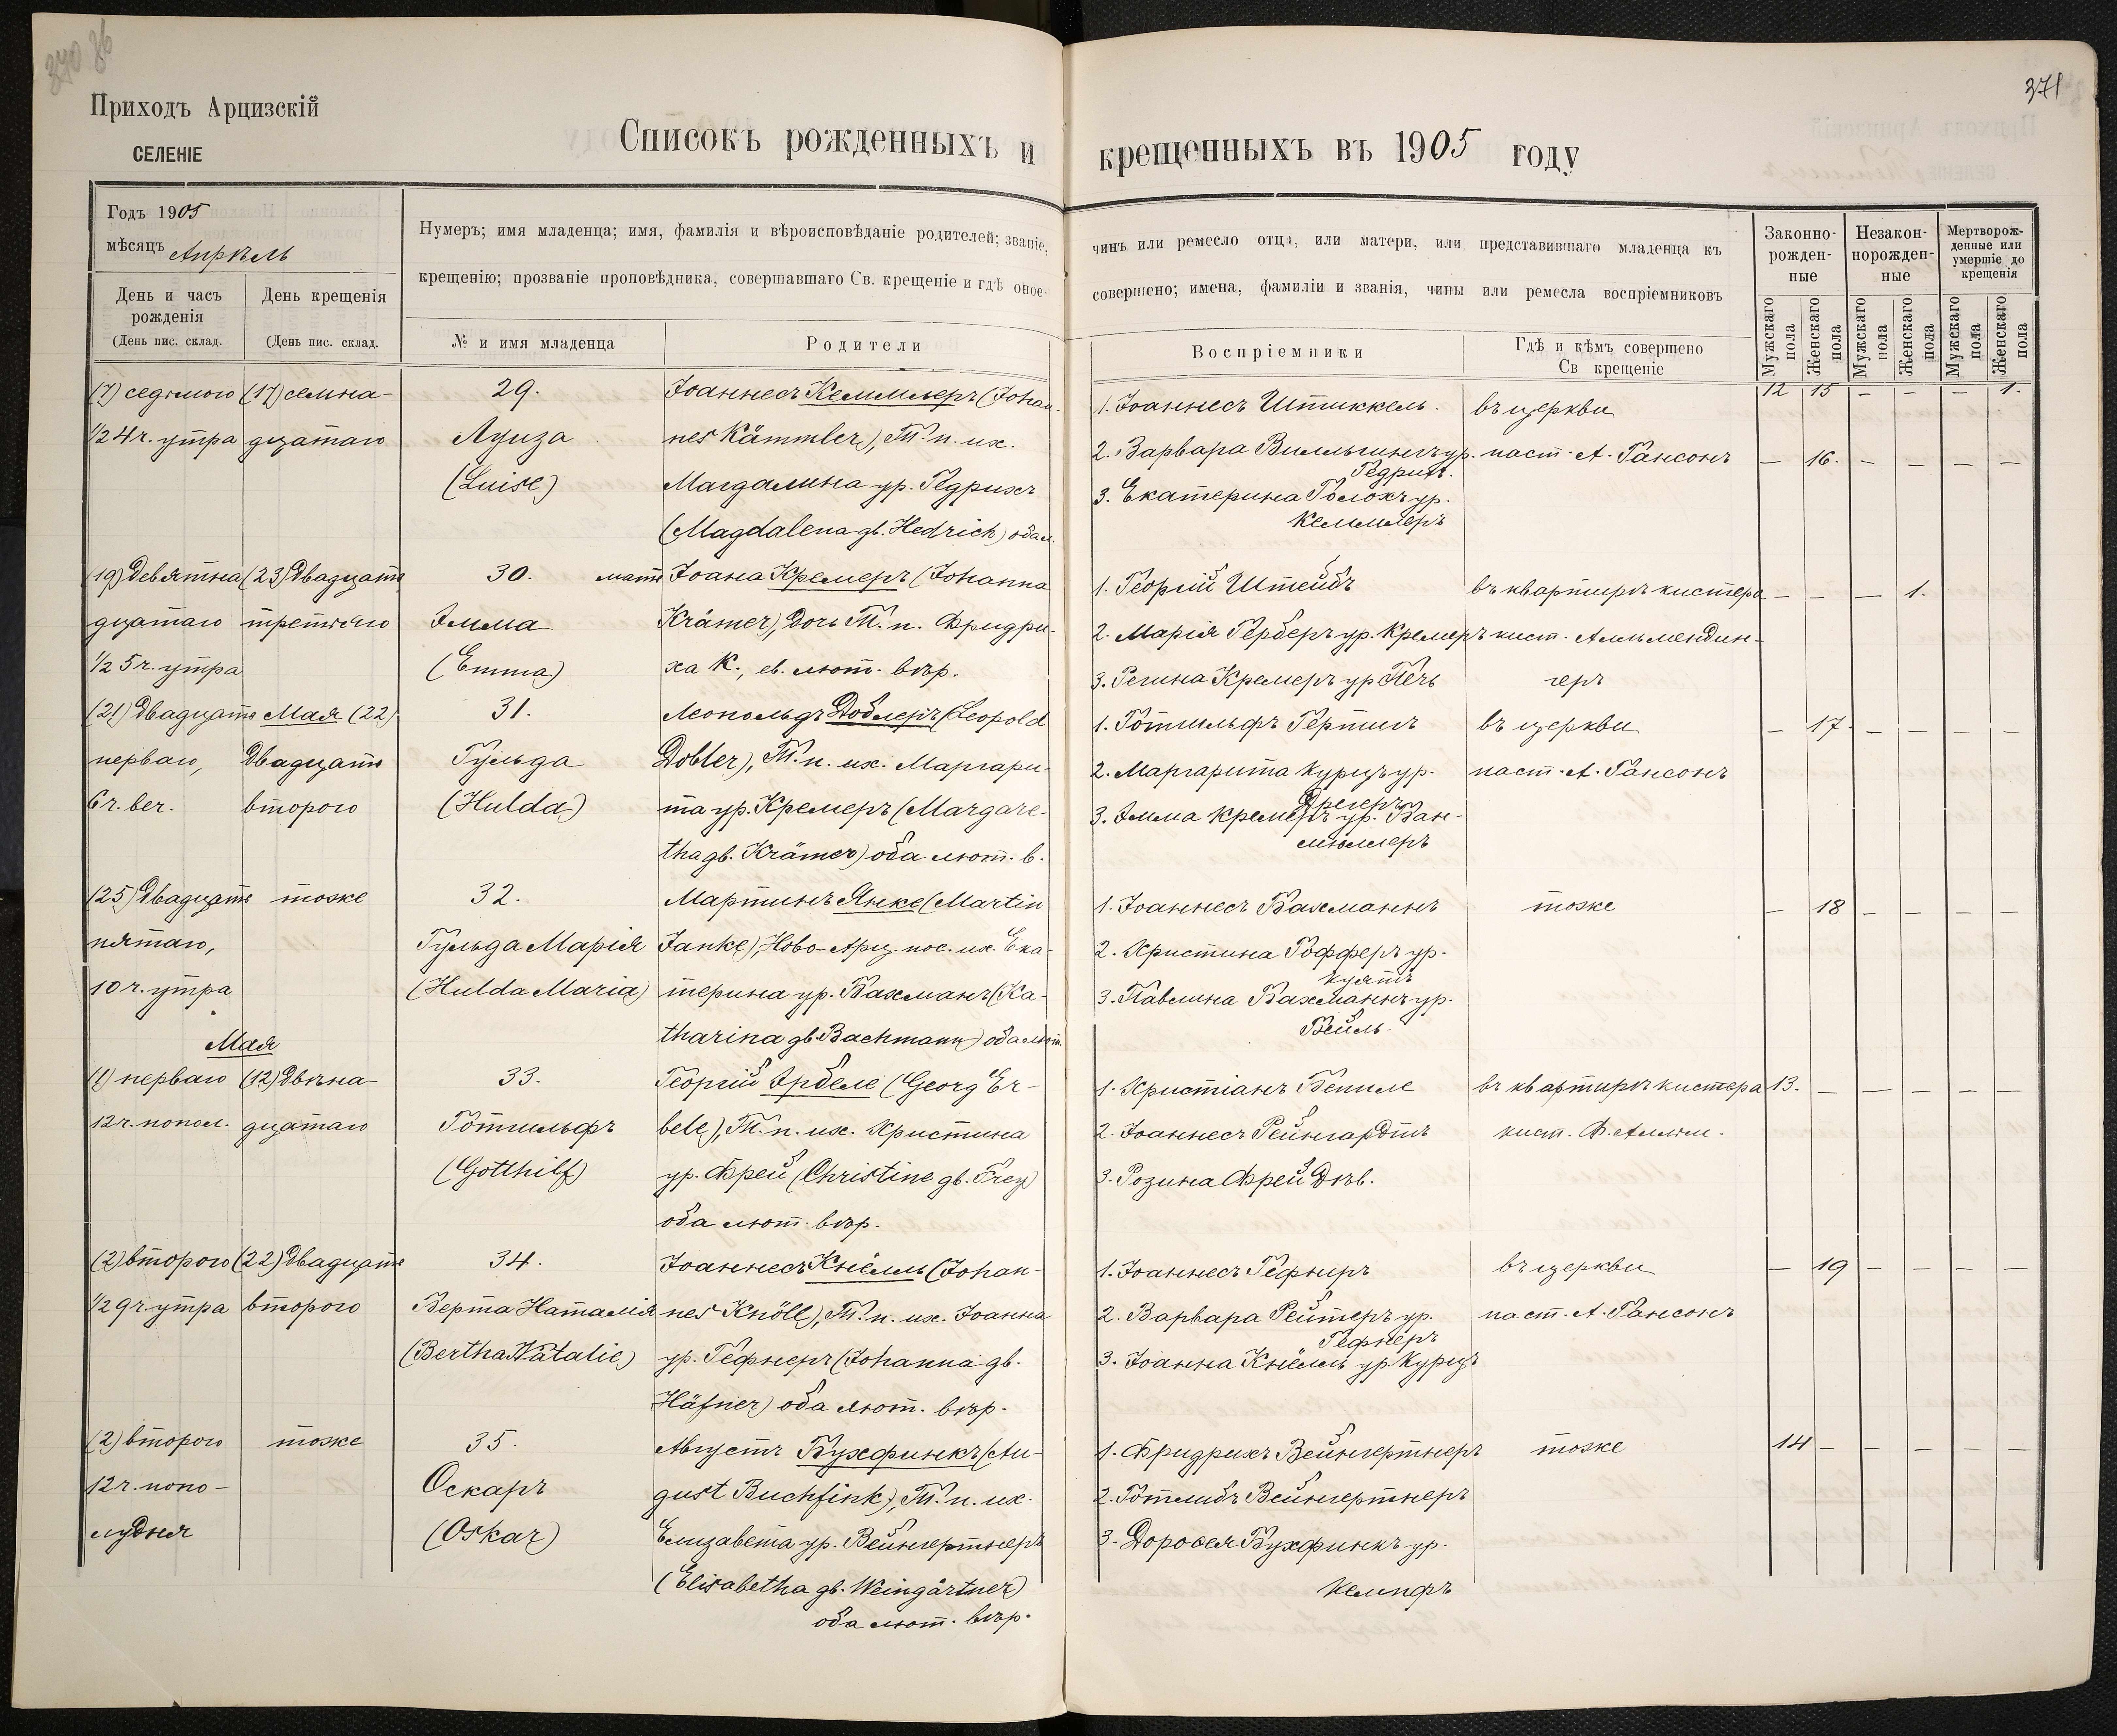 370 36
371
Приходъ Арцизскій
СЕЛЕНІЕ
Списокъ рожденныхъ и крещенныхъ въ 1905 году
Годъ 1905
мѣсяцъ Апрѣль
День и часъ рожденія
(День пис. склад.
День крещенія
(День пис. склад.
Нумеръ; имя младенца; имя, фамилія и вѣроисповѣданіе родителей; званіе, чинъ или ремесло отца, или матери, или представившаго младенца къ
крещенію; прозваніе проповѣдника, совершавшаго Св. крещеніе и гдѣ оное совершено; имена, фамиліи и званія, чины или ремесла воспріемниковъ
№ и имя младенца
Родители
Воспріемники
Гдѣ и кѣмъ совершено
Св крещеніе
Законно-
рожден-
ные
Незакон-
норожден-
ные
Мертворож-
денные или
умершіе до
крещенія
Мужскаго пола
Женскаго пола
Мужскаго пола
Женскаго пола
Мужскаго пола
Женскаго пола
12 15 — — — 1.
(7) седьмого
1/2 4 ч. утра
(17) семна-
дцатаго
29.
Луиза
(Luise)
Іоаннесъ Кеммлеръ (Johan-
nes Kämmler), Т. п. их.
Магдалина ур. Гедрихъ
(Magdalena gb. Hedrich) оба л.
1. Іоаннесъ Штиккель.
2. Варвара ур.
Гедрих.
3. Екатерина Голохъ ур.
Кеммлеръ
въ церкви
паст. А. Гансонъ
— 16. — — — —
(19) девятна
дцатаго
1/2 5 ч. утра
(23) двадцать
третьяго
30.
Эмма
(Emma)
мать Іоана Кремеръ (Johanna
Krämer), дочь Т. п. Фридри-
ха К., ев. лют. вѣр.
1. Георгій Штейбъ
2. Марія Герберъ ур. Кремеръ
3. Регина Кремеръ ур
въ квартирѣ кистера
кист. Альмендин-
геръ
— — — 1.
(21) двадцать
перваго,
6 ч. веч.
Мая (22)
двадцать
второго
31.
Гульда
(Hulda)
Леопольдъ Доблеръ (Leopold
Dobler), Т. п. их. Маргари-
та ур. Кремеръ (Margare-
tha gb. Krämer) оба лют. в.
1. Готгильфъ
2. Маргарита Курцъ ур.
Дрегеръ
3. Эмма Кремеръ ур. Ван-
мюллеръ
въ церкви
паст. А. Гансонъ
— 17. — — — —
(25) двадцать
пятаго,
10 ч. утра
тоже
32.
Гульда Марія
(Hulda Maria)
Мартинъ Янке (Martin
Janke), Ново-Арц. пос. их. Ека-
терина ур. Бахманъ (Ka-
tharina gb. Bachmann) оба лют.
1. Іоаннесъ Бахманнъ
2. Христина Гофферъ ур.
3. Павлина Бахманнъ ур.
Вейль.
тоже
— 18 — — — —
Мая
(1) перваго
12 ч. попол.
(12) двѣна-
дцатаго
33.
Готгильфъ
(Gotthilf)
Георгій Эрбеле (Georg Er-
bele), Т. п. их. Христина
ур. Фрей (Christine gb. Frey)
оба лют. вѣр.
1. Христіанъ
2. Іоаннесъ Рейнгардтъ
3. Розина Фрей дѣв.
въ квартирѣ кистера
кист. Ф. Альм.
13. — — — — —
(2) второго
1/2 9 ч. утра
(22) двадцать
второго
34.
Берта Наталія
(Bertha Natalie)
Іоаннесъ Кнёлль (Johan-
nes Knöll), Т. п. их. Іоанна
ур. Гефнеръ (Johanna gb.
Häfner) оба лют. вѣр.
1. Іоаннесъ Гефнеръ
2. Варвара Рейтеръ ур.
Гефнеръ
3. Іоанна Кнёлль ур. Курцъ
въ церкви
паст. А. Гансонъ
— 19 — — — —
(2) второго
12 ч. попо-
лудня
тоже
35.
Оскаръ
(Oskar)
Августъ Бухфинкъ (Au-
gust Buchfink), Т. п. их.
Елизавета ур. Вейнгертнеръ
(Elisabetha gb. Weingärtner)
оба лют. вѣр.
1. Фридрихъ Вейнгертнеръ
2. Готлибъ Вейнгертнеръ
3. Доровея Бухфинкъ ур.
Кемпфъ
тоже
14 — — — — —